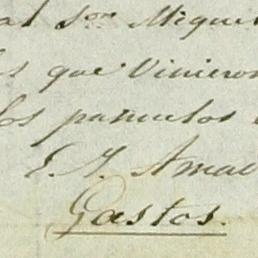 al Sor. Miguel
los que Vinieron
los pañuelos
E. Y. Amad
Gastos.